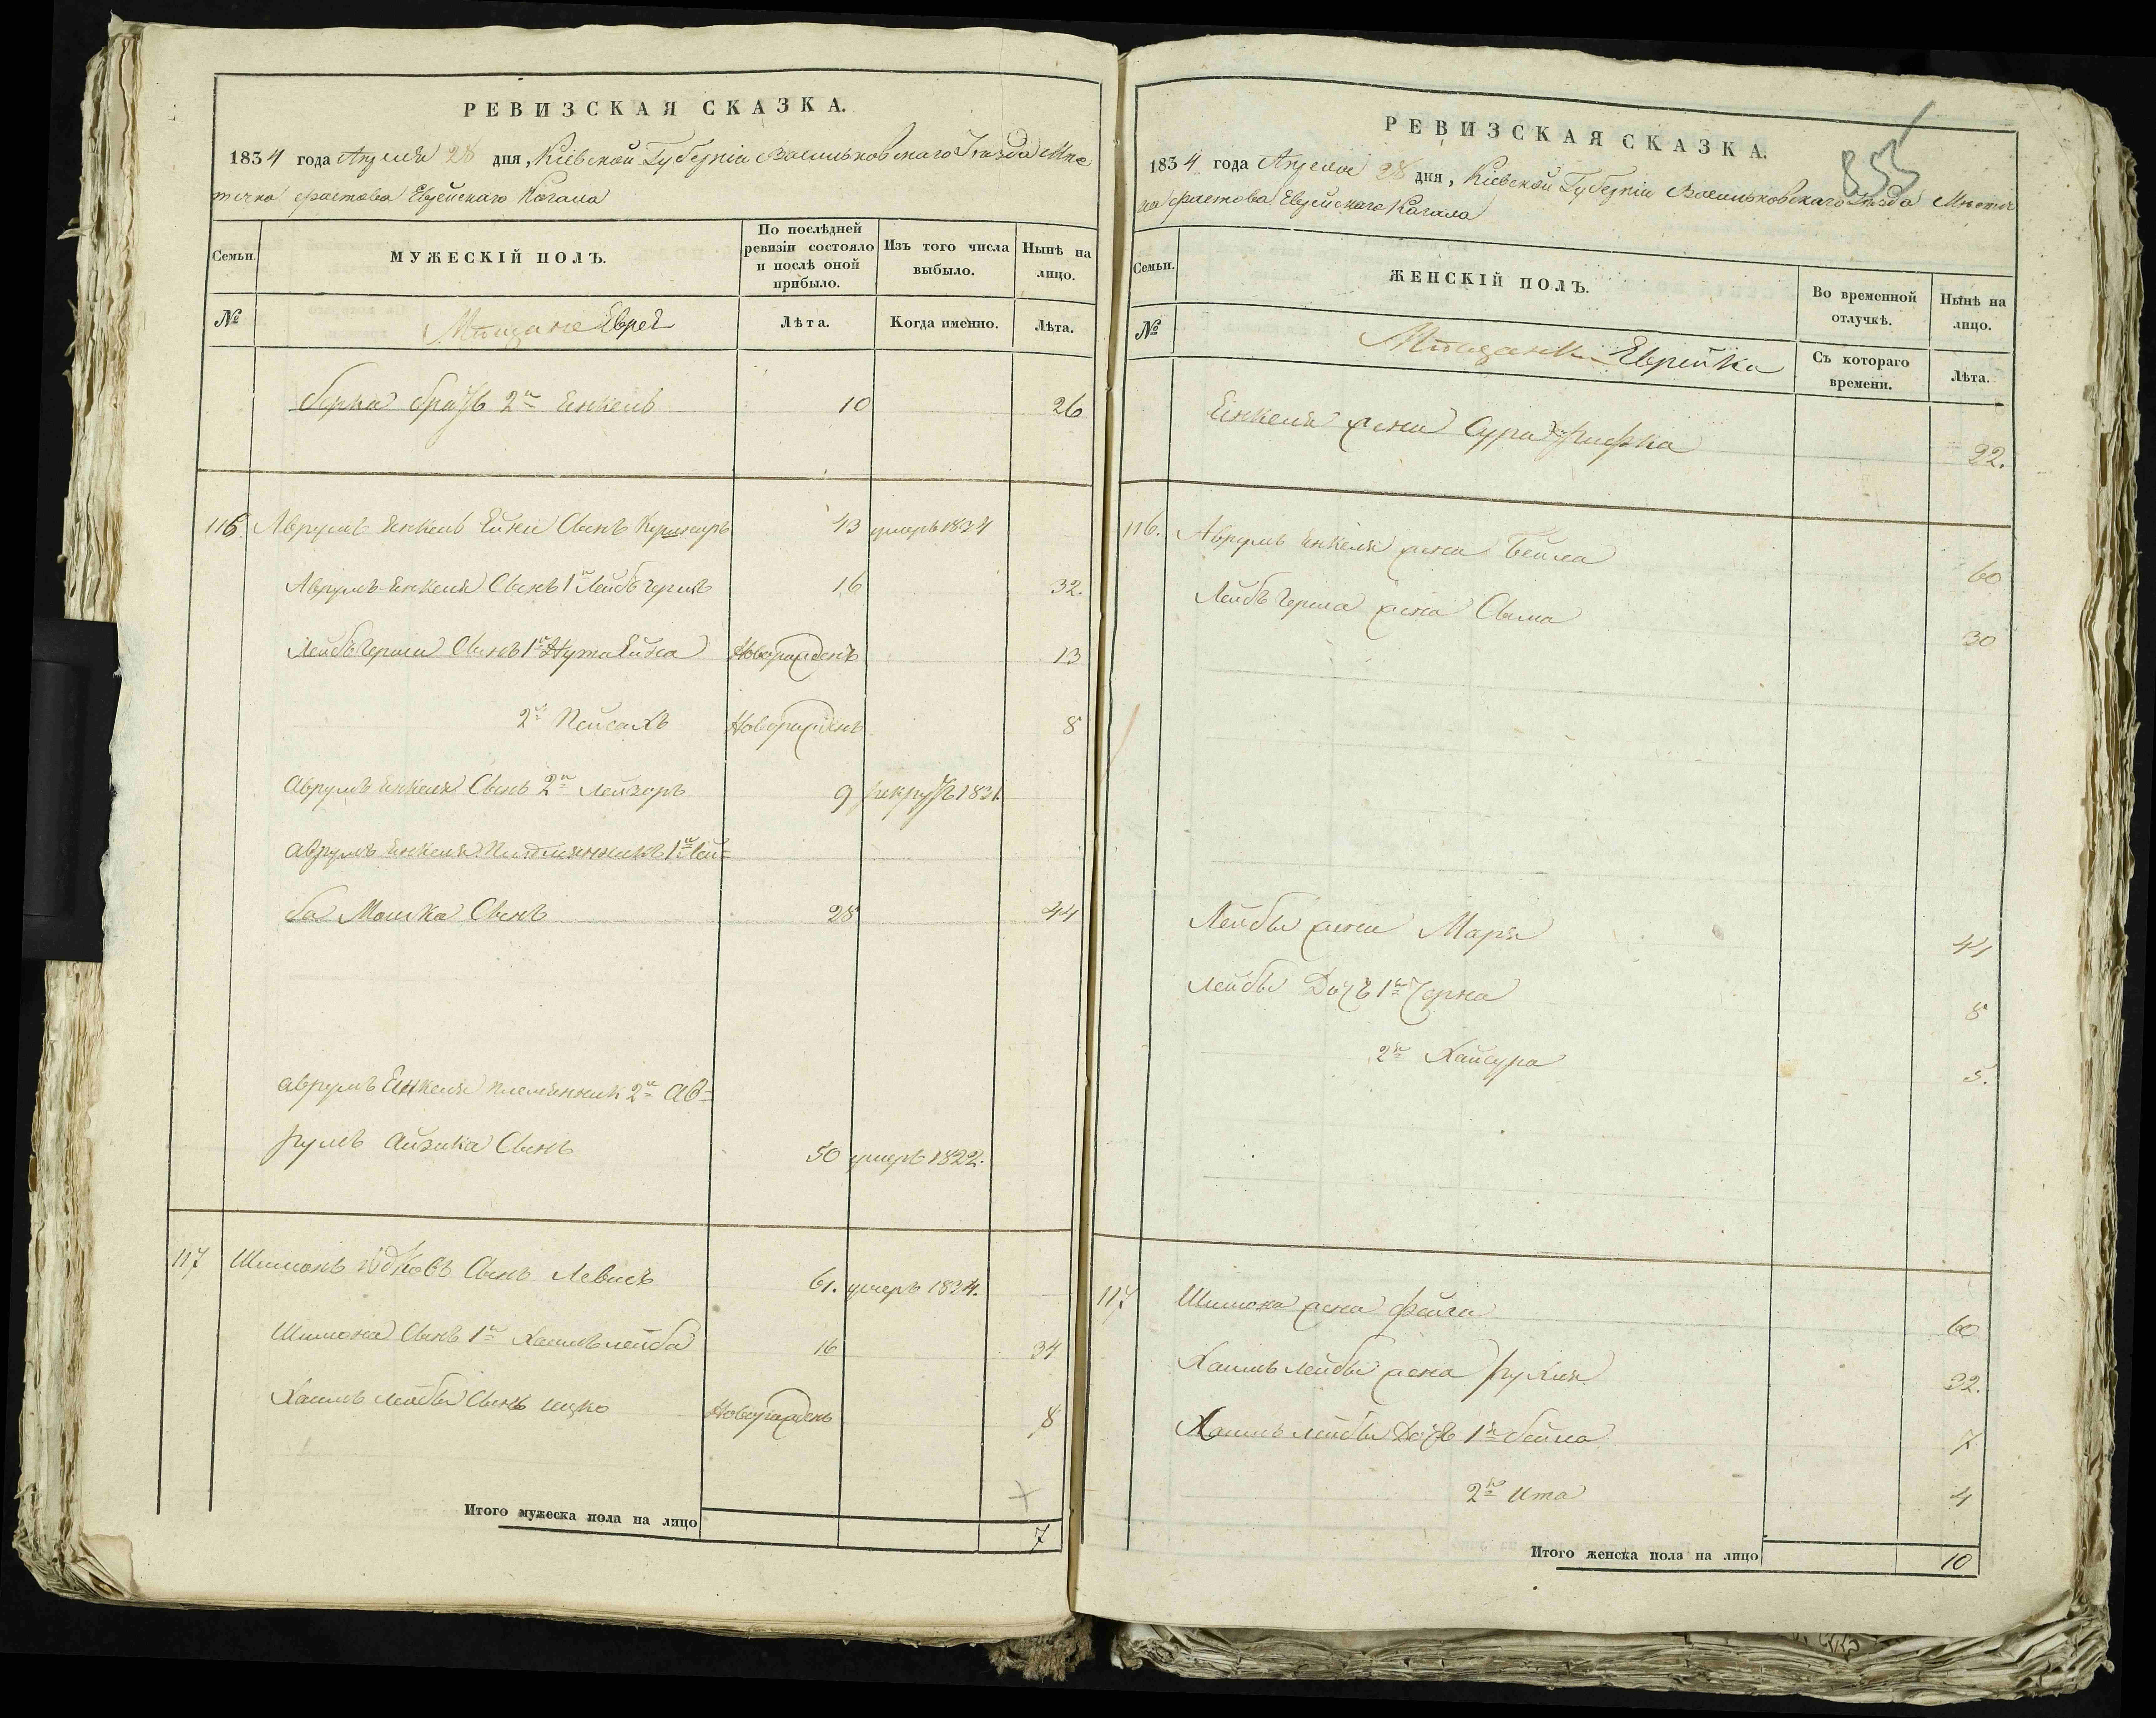 РЕВИЗСКАЯ СКАЗКА.
1834 года Апреля 28 дня, Кіевской Губерніи Васильковскаго Уезда Мѣс
течка Фастова Еврейскаго Кагала
Семьи.
МУЖЕСКІЙ ПОЛЪ.
По послѣдней ревизіи состояло и послѣ оной прибыло.
Изъ того числа выбыло.
Нынѣ на лицо.
№
Мѣщане Евреи
Лѣта.
Когда именно.
Лѣта.
Берка братъ 2й Енкель 10 26
116 Аврумъ Енкель Ейни Сынъ 43 умеръ 1834
Аврумъ-Енкеля Сынъ 1й Лейбъ Гершъ 16 32.
Лейбъ Герша Сынъ 1й Нута Ейна Новорожденъ 13
2й Пейсахъ Новорожденъ 8
Аврумъ Енкеля Сынъ 2й Лейзоръ 9 рекрутъ 1831.
Аврумъ Енкеля Племянникъ 1й Лей=
ба Мошка Сынъ 28 44
Аврумъ Енкеля племянник 2й Ав=
румъ Айзика Сынъ 50 умеръ 1822.
117 Шимонъ Юдковъ Сынъ Левитъ 61. умеръ 1834.
Шимона Сынъ 1й Хаимъ лейба 16 34
Хаимъ Лейбы Сынъ ицко Новорожденъ 8
Итого мужеска пола на лицо 7
855
РЕВИЗСКАЯ СКАЗКА.
1834 года Апреля 28 дня, Кіевской Губерніи Васильковскаго Уезда Мѣстеч
ка Фастова Еврейскаго Кагала
Семьи.
ЖЕНСКІЙ ПОЛЪ.
Во временной отлучкѣ.
Нынѣ на лицо.
№
Мѣщанки Еврейки
Съ котораго времени.
Лѣта.
Енкеля жена Сура Рифка 22.
116. Аврумъ Енкеля жена Бейла 60
Лейбъ Герша жена Сыма 30
Лейбы жена Маря 41
Лейбы Дочь 1я Черна 8
2я Хайсура 5.
117 Шимона жена Фейга 60
Хаимъ Лейбы жена Рухля 32.
Хаимъ Лейбы Дочь 1я Бейла 7
2я Ита 4
Итого женска пола на лицо 10